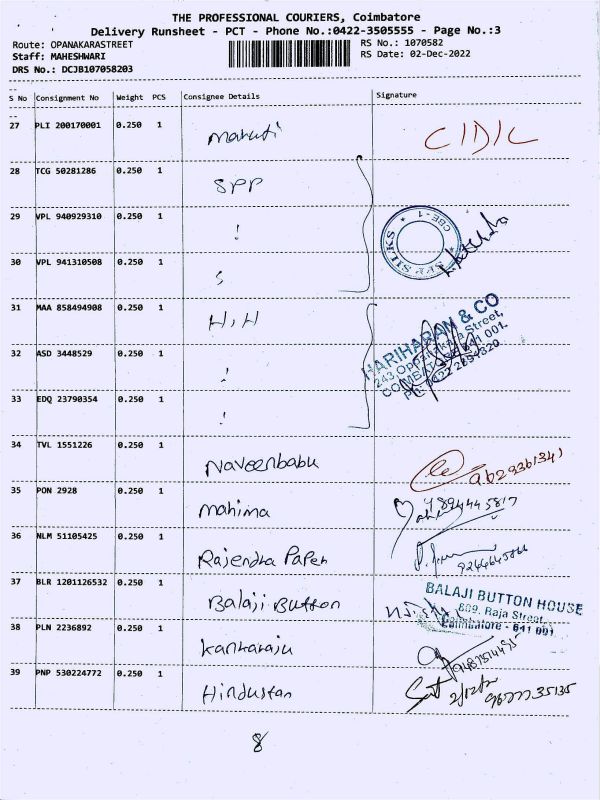 THE PROFESSIONAL COURIERS, Coimbatore
Delivery Runsheet - PCT - Phone No.:0422-3505555 - Page No.:3
Route: OPANAKARASTREET RS No.: 1070582
Staff: MAHESHWARI RS Date: 02-Dec-2022
DRS No.: DCJB107058203
S No Consignment No Weight PCS Consignee Details Signature
27 PLI 200170001 0.250 1 Maruti
28 TCG 50281286 0.250 1 SPP
29 VPL 940929310 0.250 1
SPP SILKS * CBE-1 *
30 VPL 941310508 0.250 1
31 MAA 858494908 0.250 1 H.H
HARIHARAN & CO
243, Oppanakara Street,
COIMBATORE-641 001.
32 ASD 3448529 0.250 1
33 EDQ 23790354 0.250 1
34 TVL 1551226 0.250 1 Naveenbabu
35 PON 2928 0.250 1 Mahima
36 NLM 51105425 0.250 1 Rajendra Paper
37 BLR 1201126532 0.250 1 Balaji Button
BALAJI BUTTON HOUSE
809, Raja Street,
Coimbatore - 641 001
38 PLN 2236892 0.250 1 Kankaraju
39 PNP 530224772 0.250 1 Hindustan
8